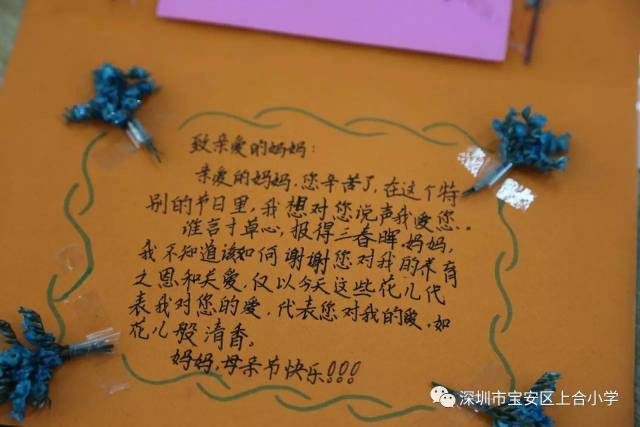 致亲爱的妈妈：
亲爱的妈妈，您辛苦了，在这个特
别的节日里，我想对您说声我爱您。
谁言寸草心，报得三春晖。妈妈，
我不知道该如何谢谢您对我的养育
之恩和关爱，仅以今天这些花儿代
表我对您的爱，代表您对我的爱，如
花儿般清香。
妈妈，母亲节快乐！！！
深圳市宝安区上合小学